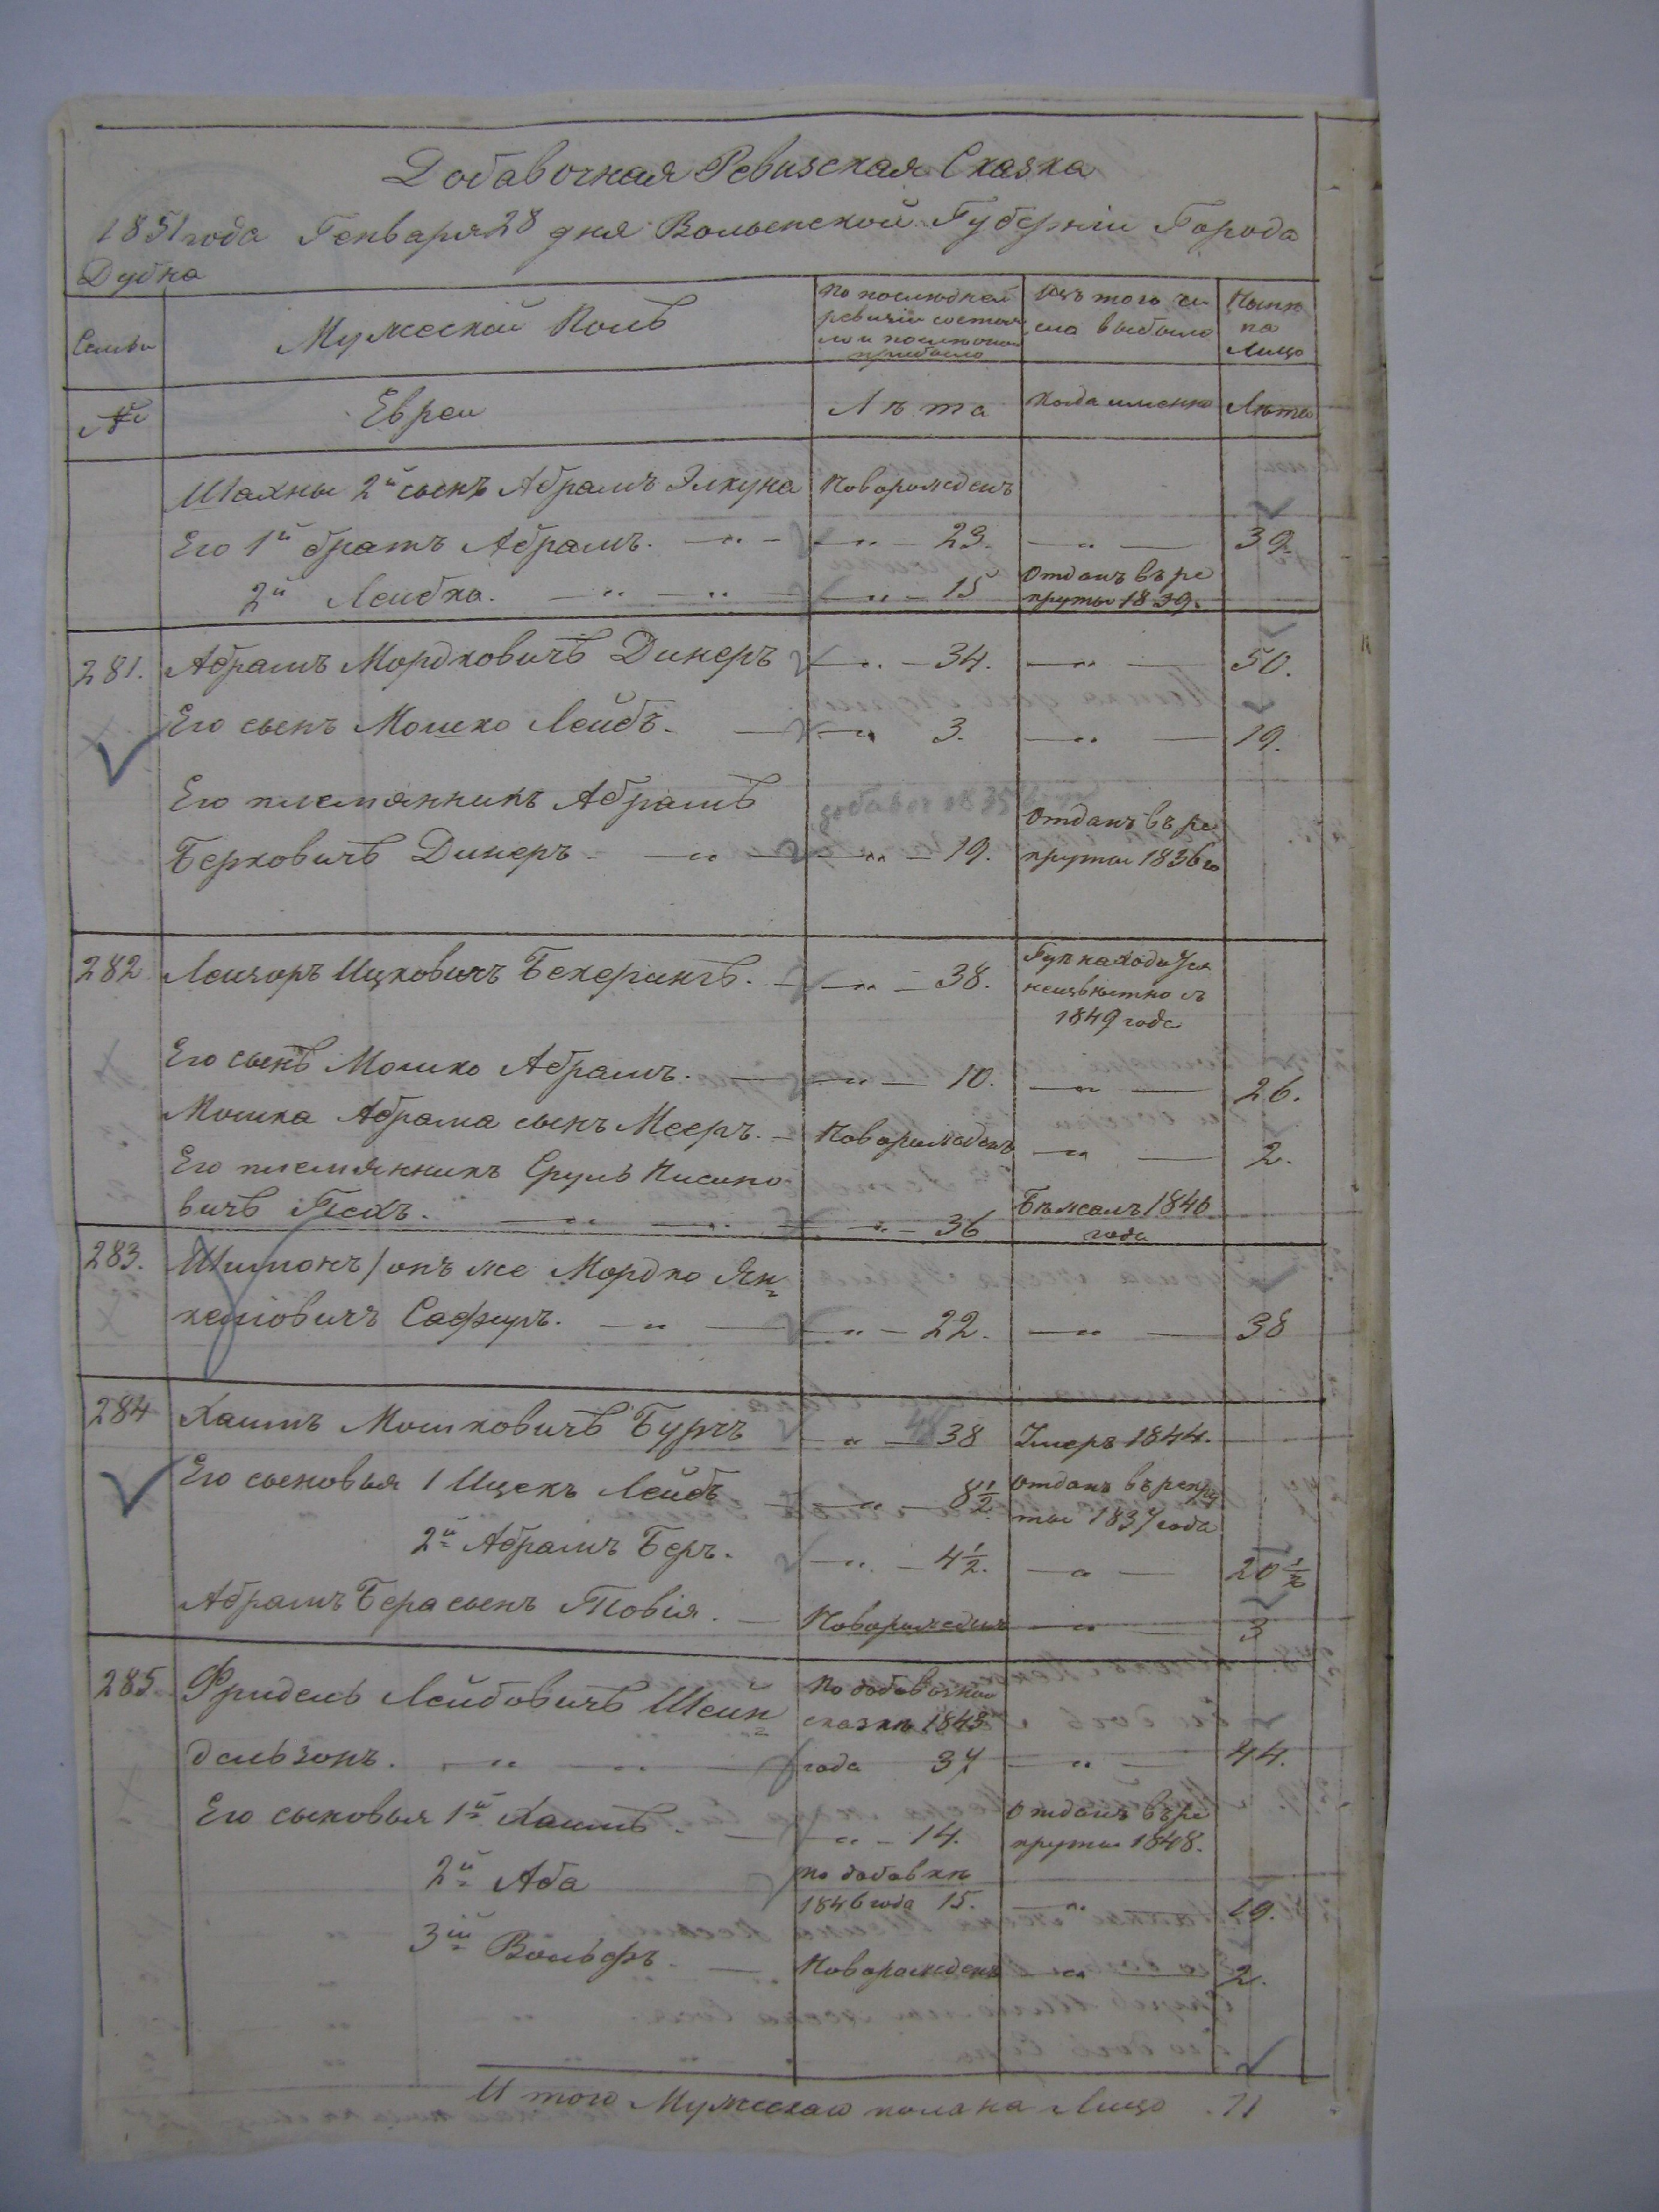 Добавочная Ревизская Сказка
1851 года Генваря 28 дня Волынской Губерніи Города
Дубна
Семьи
Мужескій Полъ
По последней
ревизіи состоя
ло и после оной
прибыло
Изъ того чи
сла выбыло
Нынѣ
на
Лицо
№
Евреи
Лѣта
Когда именно
Лѣта
Шахны 2й сынъ Абрамъ Элкуна Новорожденъ
Его 1й братъ Абрамъ. — „ — „ — 23. — „ — 39.
2й Лейбка. — „ — „ — „ — 15 Отданъ въ ре
круты 1839.
281. Абрамъ Мордковичъ Динеръ — „ — 34. — „ — 50.
Его сынъ Мошко Лейбъ. — „ 3. — „ — 19.
Его племянникъ Абрамъ
Отданъ въ ре
Берковичъ Динеръ — „ — „ — 19. круты 1836 го
282 Лейзоръ Ицковичъ Бекерингъ. — „ — 38. Гдѣ находится
неизвѣстно съ
1849 года
Его сынъ Мошко Абрамъ. — „ — 10. — „ — 26.
Мошка Абрама сынъ Мееръ. — Новорожденъ — „ — 2.
Его племянникъ Сруль
вичъ — „ — „ — „ — 36 Бѣжалъ 1846
года
283. Шимонъ / онъ же Мордко Ян
келіовичъ Сафиръ. — „ — „ — 22. — „ — 38
284 Хаимъ Мошковичъ — „ — 38 Умеръ 1844.
Его сыновья 1 Ицекъ Лейбъ — „ — 8½ Отданъ въ рекру
ты 1837 года
2й Абрамъ Беръ. — „ — 4½. — „ — 20½
Абрамъ Бера сынъ Товія. — Новорожденъ — „ — 3
285. Фридель Лейбовичъ Шейн
По добавочной
сказкѣ 1843
дельзонъ. — „ — „ — года 37 — „ — 44.
Его сыновья 1й Хаимъ. — „ — 14. Отданъ въ ре
круты 1848.
2й Аба по добавкѣ
1846 года 15. — „ — 19.
3ій Вольфъ. — Новорожденъ — „ — 2.
И того Мужескаго пола на Лицо . 11